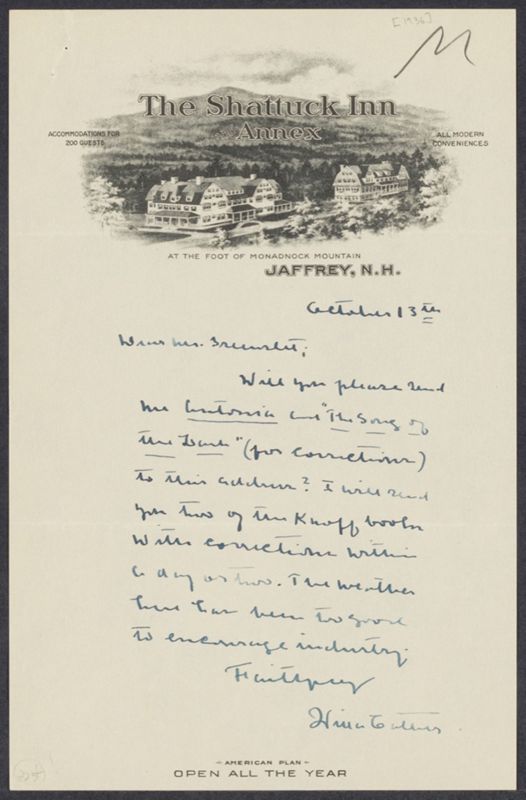 [1936]
M
The Shattuck Inn
Annex
ACCOMMODATIONS FOR
200 GUESTS
ALL MODERN
CONVENIENCES
AT THE FOOT OF MONADNOCK MOUNTAIN
JAFFREY, N.H.
October 13th
Dear Mr.
Will you please send
me Antonia and "The Song of
the Lark" (for corrections)
to this address? I will send
you two of the Knopf books
with corrections within
a day or two. The weather
here has been too good
to encourage industry.
Faithfully
Willa Cather
AMERICAN PLAN
OPEN ALL THE YEAR